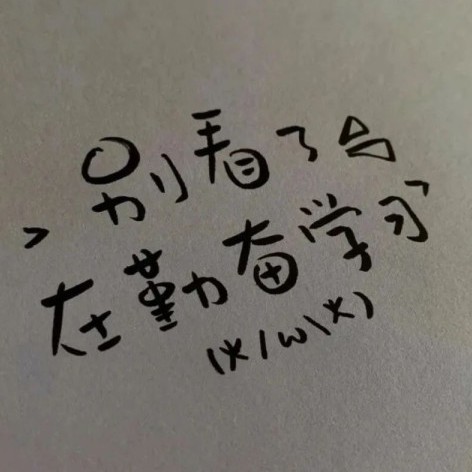 别看了△
在勤奋学习
(*/ω\*)